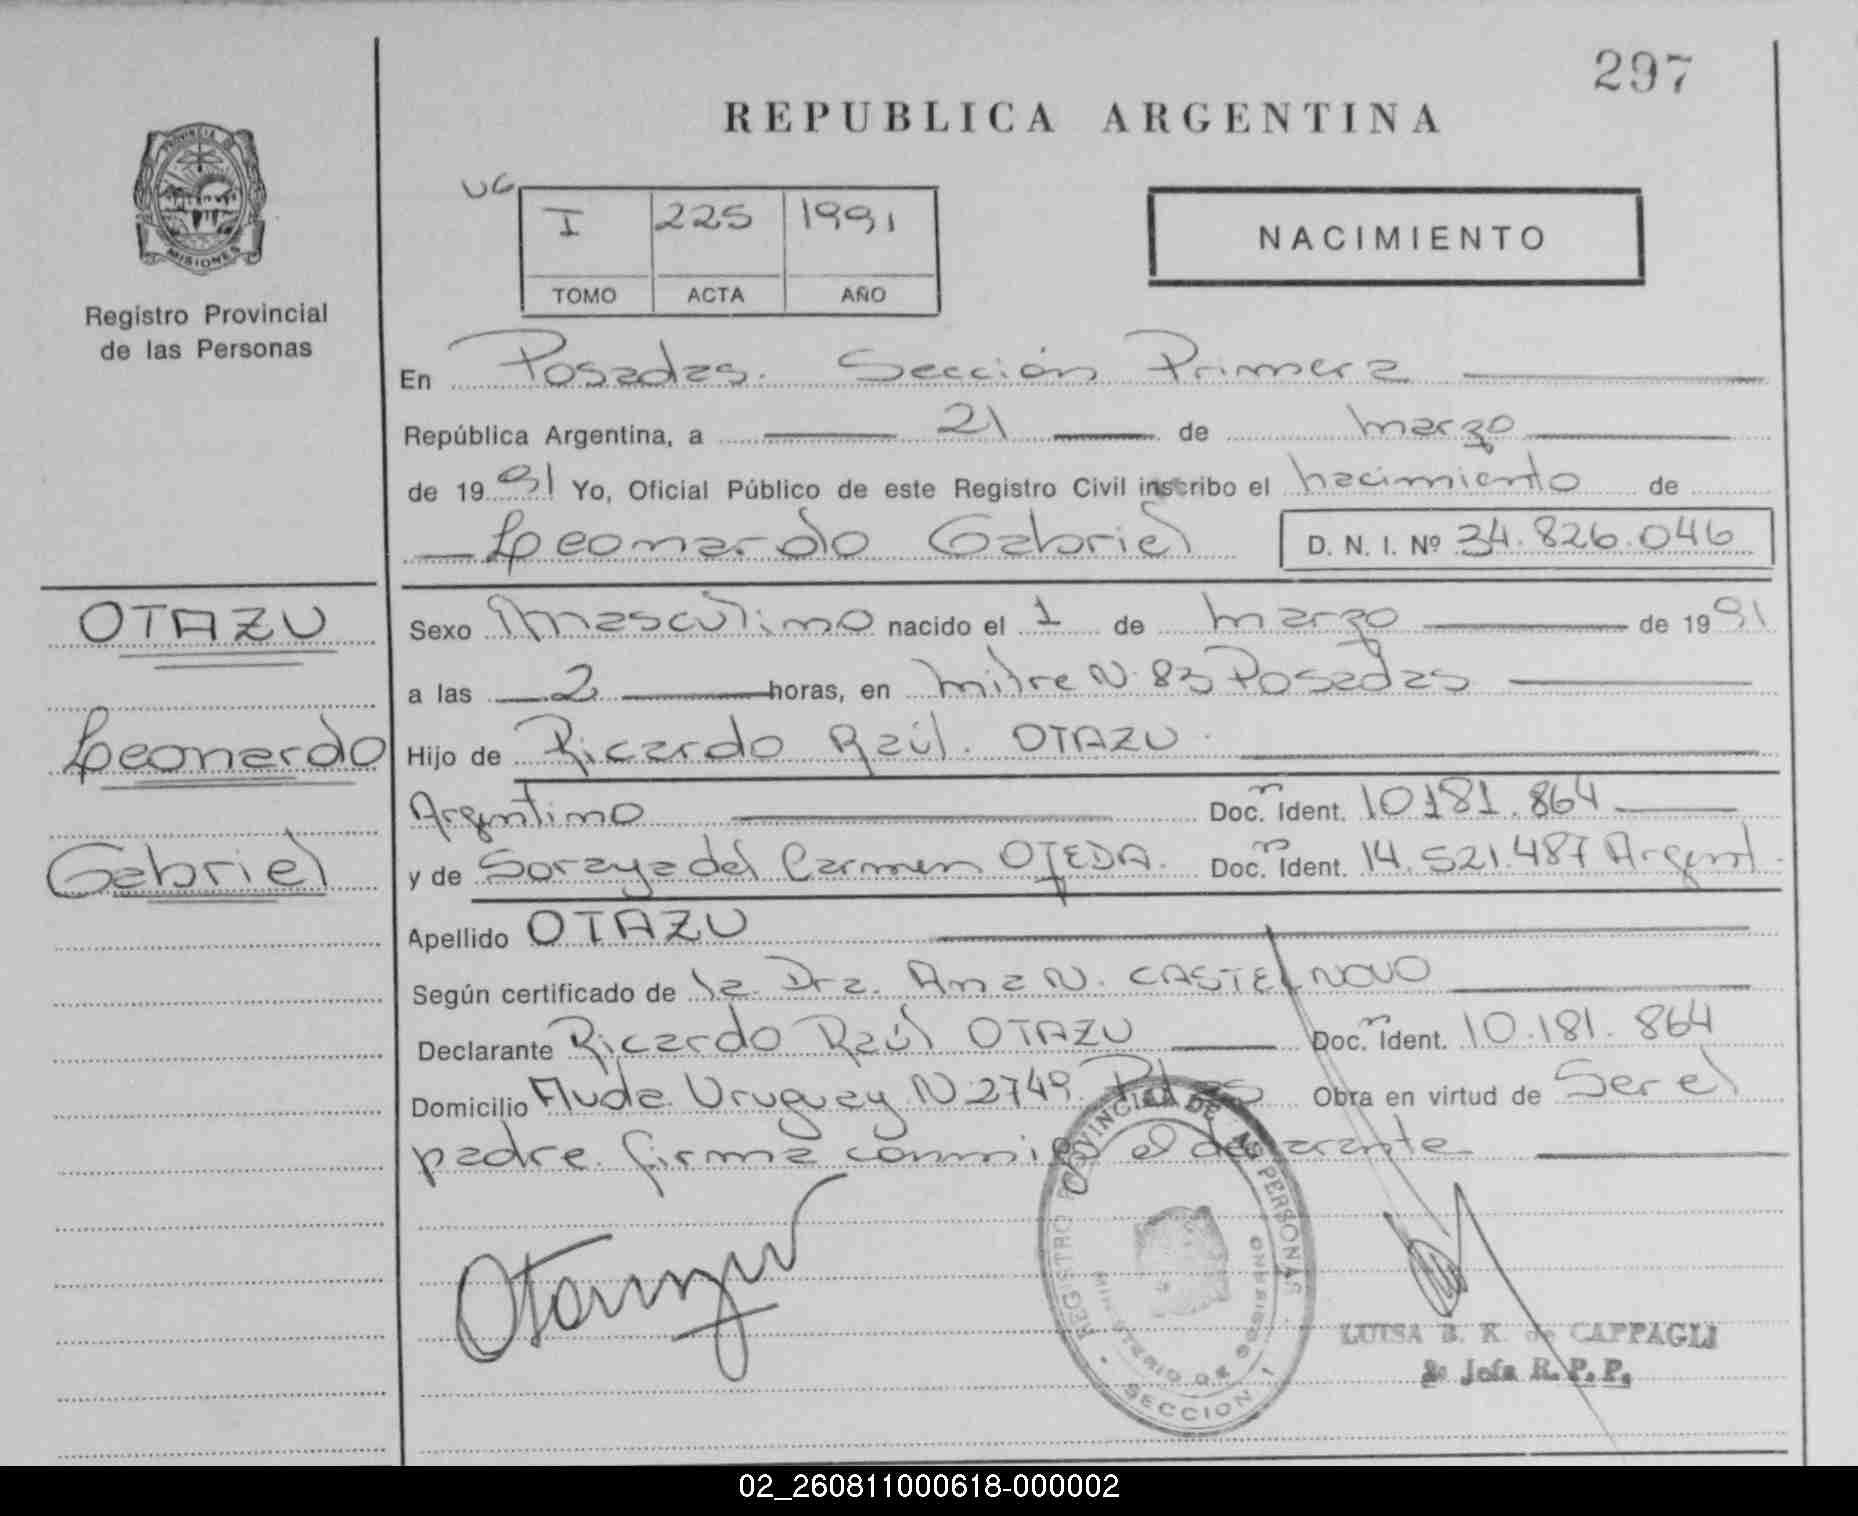 297
REPUBLICA ARGENTINA
PROVINCIA DE
MISIONES
Registro Provincial
de las Personas
UG
I 225 1991
TOMO ACTA AÑO
NACIMIENTO
En Posadas. Sección Primera
República Argentina, a 21 de marzo
de 1991 Yo, Oficial Público de este Registro Civil inscribo el nacimiento de
Leonardo Gabriel D. N. I. Nº 34.826.046
OTAZU
Leonardo
Gabriel
Sexo Masculino nacido el 1 de marzo de 1991
a las 2 horas, en Mitre N. 83 Posadas
Hijo de Ricardo Raúl. OTAZU.
Argentino Doc. Ident. 10181.864
y de Soraya del Carmen OJEDA. Doc. Ident. 14.521.487 Argent.
Apellido OTAZU
Según certificado de la Dra. Ana N. CASTELNOVO
Declarante Ricardo Raúl OTAZU Doc. Ident. 10.181.864
Domicilio Avda. Uruguay N 2749. Pdas Obra en virtud de Ser el
padre. firma conmigo el declarante
Otazu
REGISTRO PROVINCIAL DE LAS PERSONAS
MINISTERIO DE GOBIERNO
SECCION 1
LUISA B. K. de CAPPAGLI
Jefa R. P. P.
02_260811000618-000002